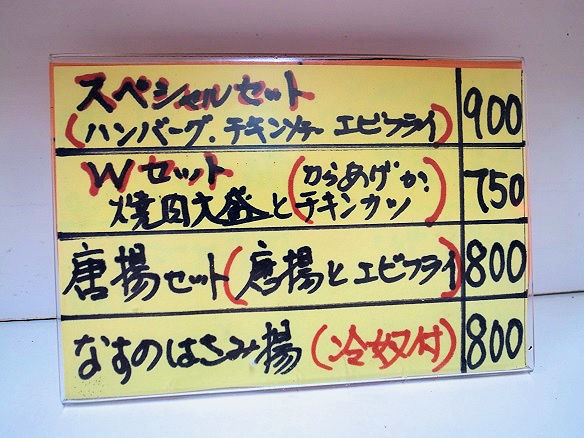 スペシャルセット
(ハンバーグ.チキンソテー エビフライ) 900
Wセット
焼肉大盛と(からあげか.チキンカツ) 750
唐揚セット(唐揚とエビフライ) 800
なすのはさみ揚(冷奴付) 800